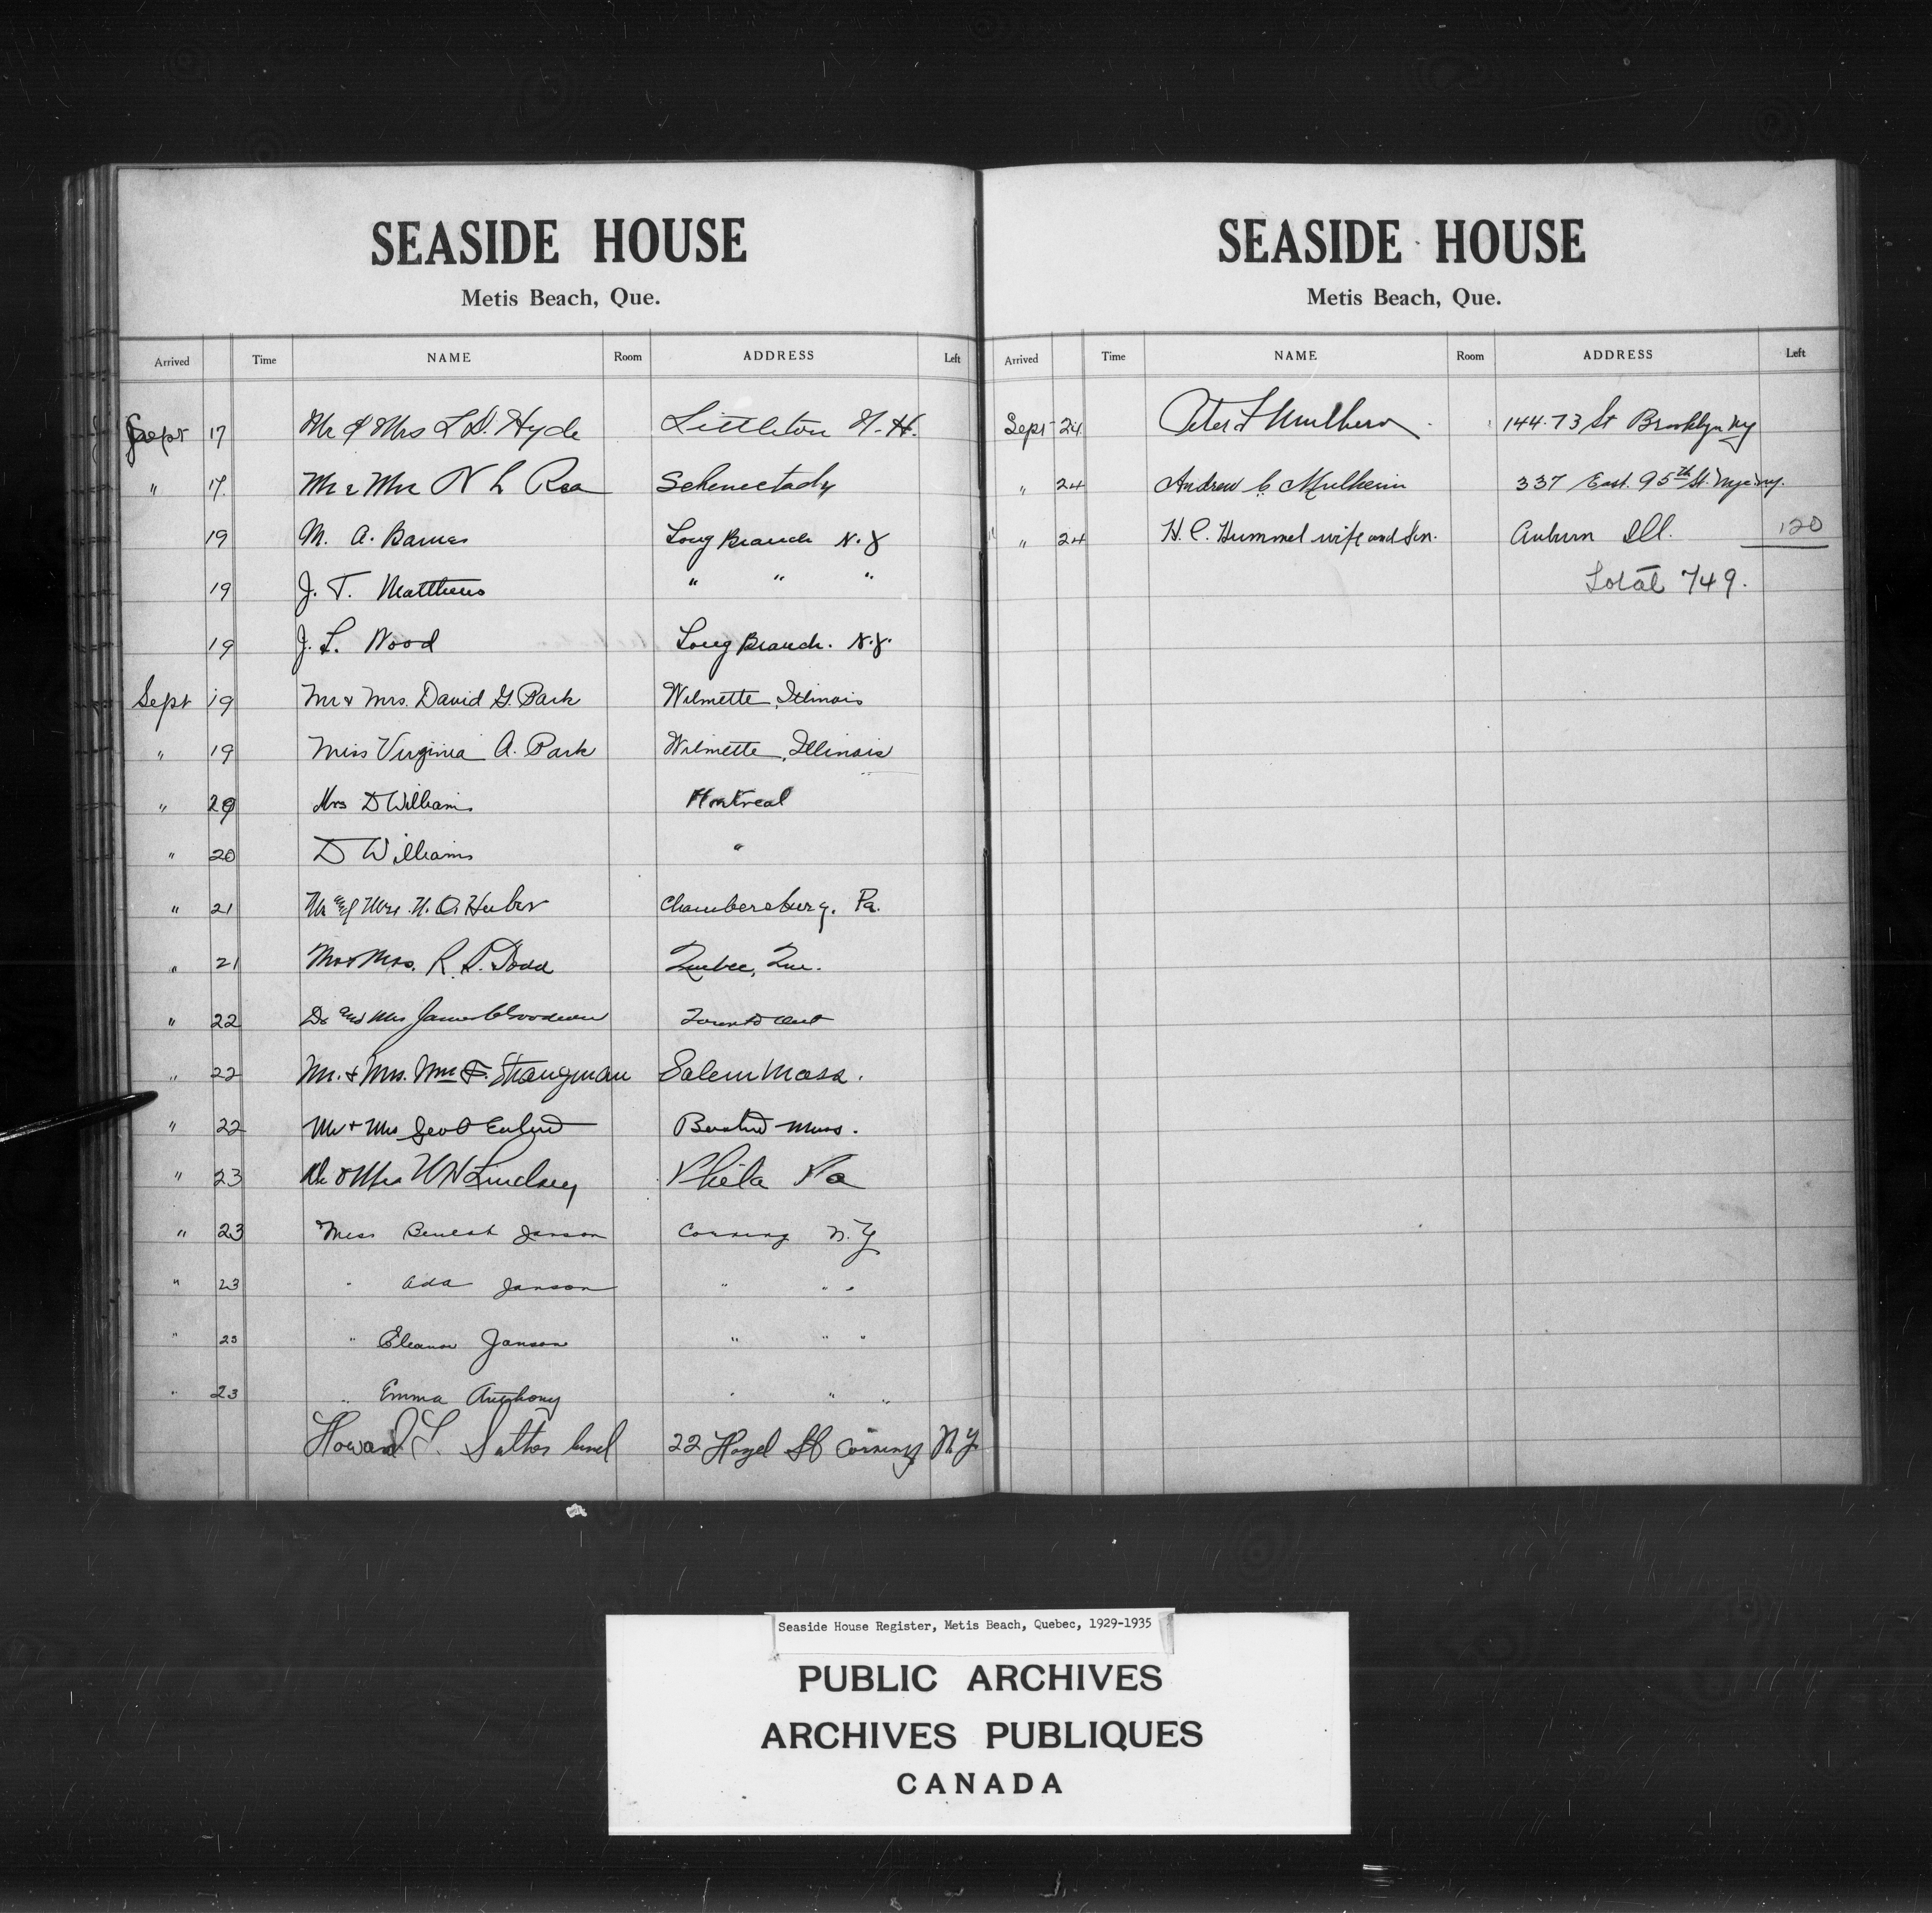 SEASIDE HOUSE
Metis Beach, Que.
Arrived Time NAME Room ADDRESS Left
Sept 17 Mr & Mrs L D. Hyde Littleton N-H.
" 17 Mr & Mrs N L Rea Schenectady
19 M. A. Barnes Long Branch N.J
19 J. T. Matthews " " "
19 J. L. Wood Long Branch. N.J.
Sept 19 Mr & Mrs. David G. Park Wilmette, Illinois
" 19 Miss Virginia A. Park Wilmette, Illinois
" 20 Mrs D Williams Montreal
" 20 D Williams "
" 21 Mr and Mrs. H. O. Huber Chambersburg, Pa.
" 21 Mr & Mrs. R. S. Dodd Quebec, Que.
" 22 Dr and Mrs James Goodwin Toronto Ont
" 22 Mr. & Mrs. Wm F. Strangman Salem Mass.
" 22 Mr & Mrs Geo Mass.
" 23 Dr & Mrs W H Lindsey Phila Pa
" 23 Miss Beulah Janson Corning N.Y
" 23 " Ada Janson " " "
" 23 " Eleanor Janson " " "
" 23 " Emma Anthony " " "
Howard L. Sutherland 22 Hazel St Corning N.Y.
SEASIDE HOUSE
Metis Beach, Que.
Arrived Time NAME Room ADDRESS Left
Sept 24 Peter F Mulhern 144-73 St Brooklyn NY
" 24 Andrew C Mulheirn 337 East. 95th St. Nyc. ny.
" 24 H. C. Hummel wife and son. Auburn Ill. 120
Total 749.
Seaside House Register, Metis Beach, Quebec, 1929-1935
PUBLIC ARCHIVES
ARCHIVES PUBLIQUES
CANADA